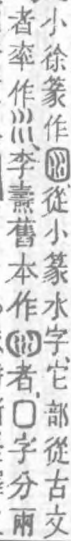 小徐篆作從小篆水字它部從古文
者率作李燾舊本作者囗字分兩